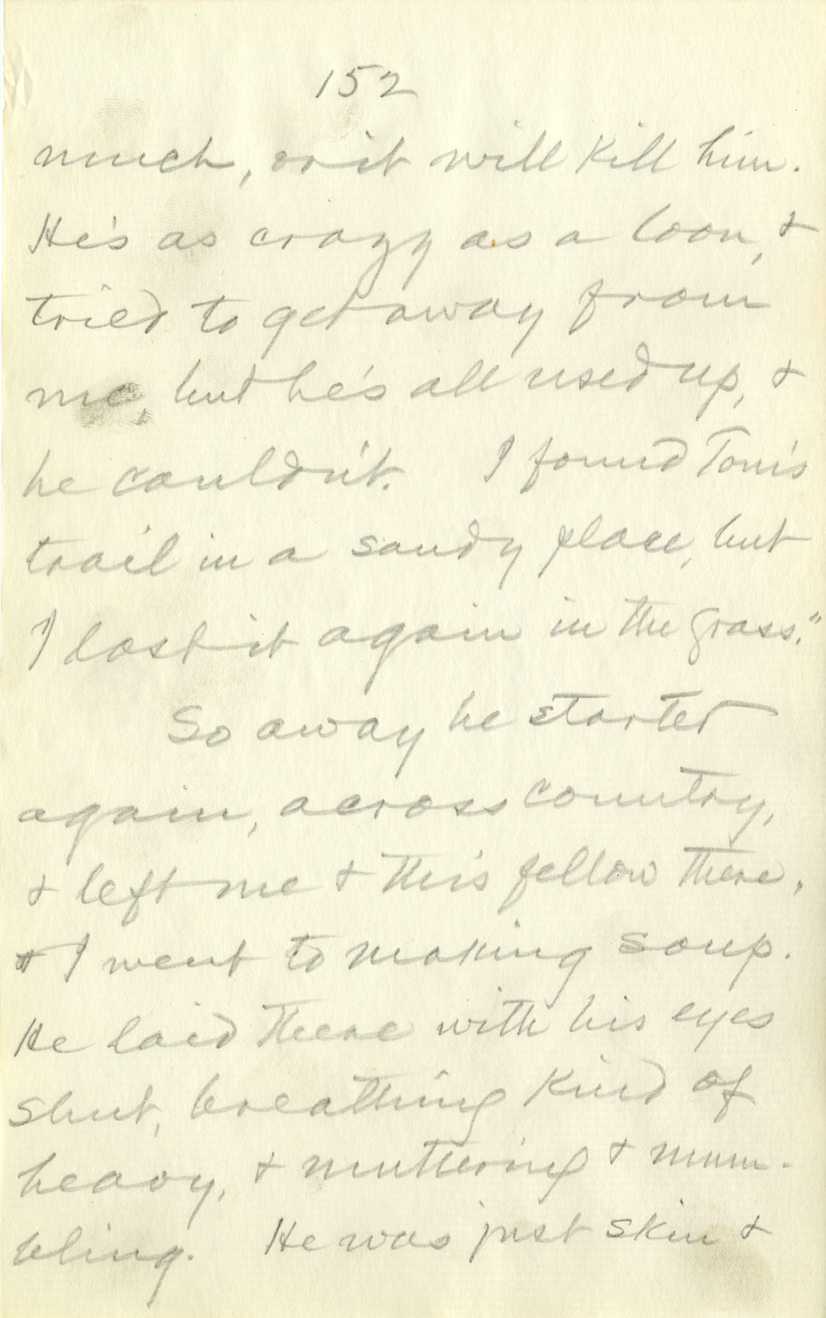 152
much, or it will kill him.
He's as crazy as a loon, &
tried to get away from
me, but he's all used up, &
he couldn't. I found Tom's
trail in a sandy place, but
I lost it again in the grass."
So away he started
again, across country,
& left me & this fellow there,
& I went to making soup.
He laid there with his eyes
shut, breathing kind of
heavy, & muttering & mum-
bling. He was just skin &